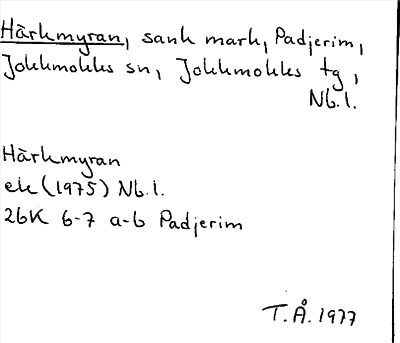 Härkmyran, sank mark, Padjerim,
Jokkmokks sn, Jokkmokks tg,
Nb.l.
Härkmyran
ek (1975) Nb.l.
26K 6-7 a-b Padjerim
T.Å. 1977